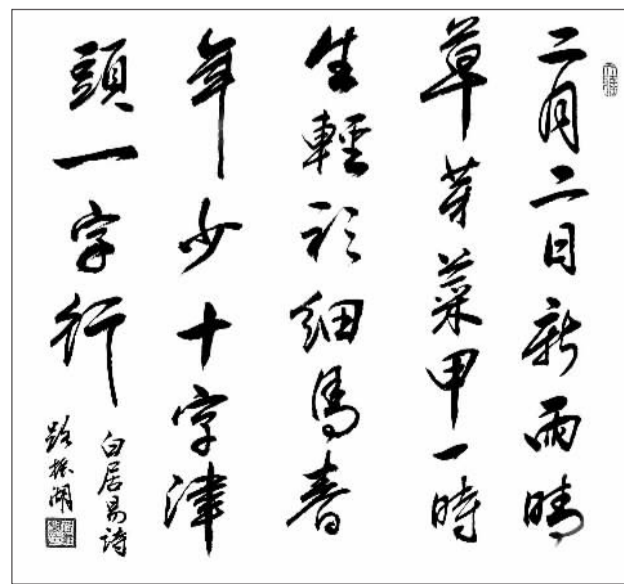 二月二日新雨晴
草芽菜甲一時
生輕衫細馬春
年少十字津
頭一字行
白居易詩
路振